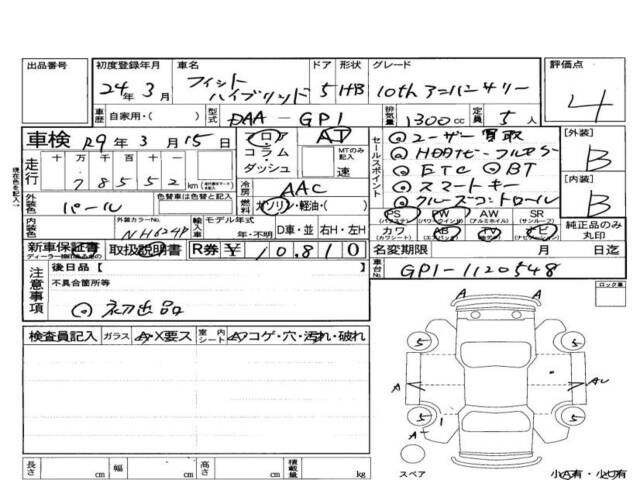 出品番号
初度登録年月
24年 3月
車名
フィット
ハイブリッド
ドア
5
形状
HB
グレード
10th アニバーサリー
評価点
4
車歴
自家用・( )
型式
DAA-GP1
排気量
1300cc
定員
5人
車検 R9年 3月 15日
走行
十 万 千 百 十
7 8 5 5 2 km
フロア・
コラム・
ダッシュ
AT
MTのみ記入
速
冷房
AAC
燃料
ガソリン・軽油・( )
外装色
パール
色替車は色替と記入
内装色
外装カラーNo.
NH624P
輸入車
モデル年式
年・不明
D車・並
右H・左H
現在色を記入↑
セールスポイント
ユーザー買取
HDDナビ・フルセグ
ETC
BT
スマートキー
クルーズコントロール
PS
(パワステ)
PW
(パワーウィンド)
AW
(アルミホイル)
SR
(サンルーフ)
カワ
(カワシート)
AB
(エアバック)
TV
(テレビ)
ナビ
(ナビゲーション)
純正品のみ
丸印
【外装】
B
【内装】
B
新車保証書
取扱説明書
R券 ¥10.810
名変期限
月 日迄
車台No.
GP1-1120548
注意事項
後日品【 】
不具合箇所等
初出品
ロック車
検査員記入
ガラス
A・X要ス
室内シート
A・コゲ・穴・汚れ・破れ
長さ cm
幅 cm
高さ cm
積載量 kg
A A
5 5
A
5 1 5
A
スペア
小A有・小U有